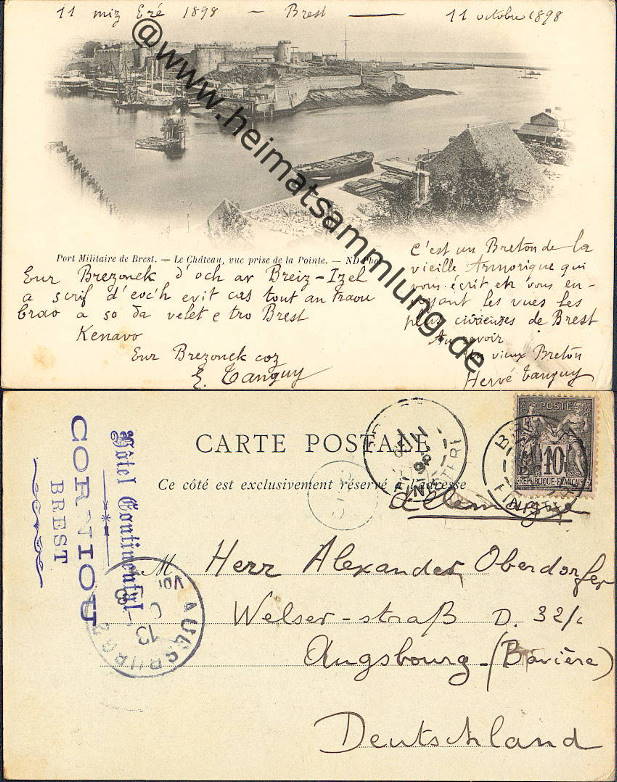 11 miz Eré 1898 — Brest — 11 octobre 1898
@www.heimatsammlung.de
Port Militaire de Brest. — Le Château, vue prise de la Pointe. — ND Phot
Eur Brezonek d'och ar Breiz-Izel
a scrif d'ec'h evit cas tout an traou
brao a so da velet e tro Brest
Kenavo
Eur Brezonek coz
E. Tanguy
C'est un Breton de la
vieille Armorique qui
vous écrit en vous en-
voyant les vues les
plus curieuses de Brest
Au revoir
Un vieux Breton
Hervé Tanguy
CARTE POSTALE
Ce côté est exclusivement réservé à l'adresse
POSTE
10
REPUBLIQUE FRANÇAISE
Allemagne
Hôtel Continental
CORNIOU
BREST
M Herr Alexander Oberdorfer
Welser-straß D. 32/c
Augsbourg-(Bavière)
Deutschland
AUGSBURG 2
13